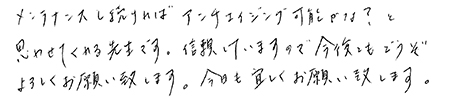 メンテナンスし続ければ アンチエイジング可能かな？と
思わせてくれる先生です。信頼していますので今後ともどうぞ
よろしくお願い致します。今日も宜しくお願い致します。